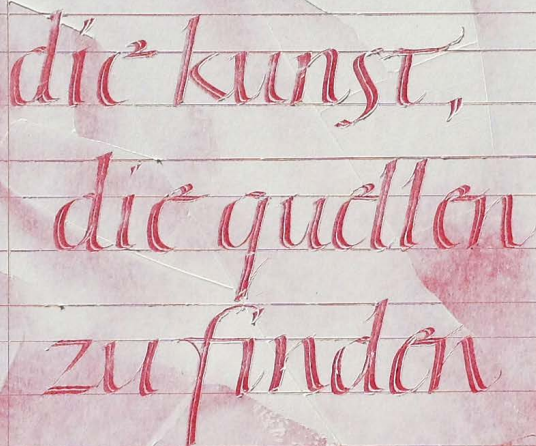 die kunst,
die quellen
zu finden